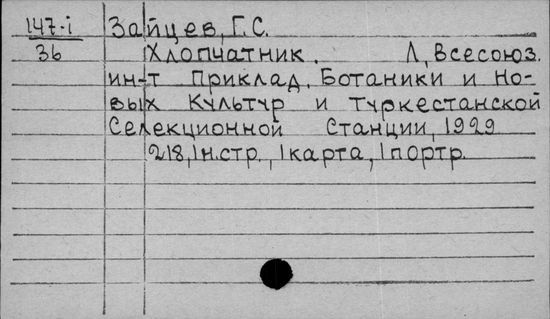 147-i Зайцев, Г.С.
36 Хлопчатник. Л, Всесоюз.
ин-т Приклад. Ботаники и Но-
вых Культур и Туркестанской
Селекционной Станции, 1929
218, 1н.стр., 1карта, 1портр.